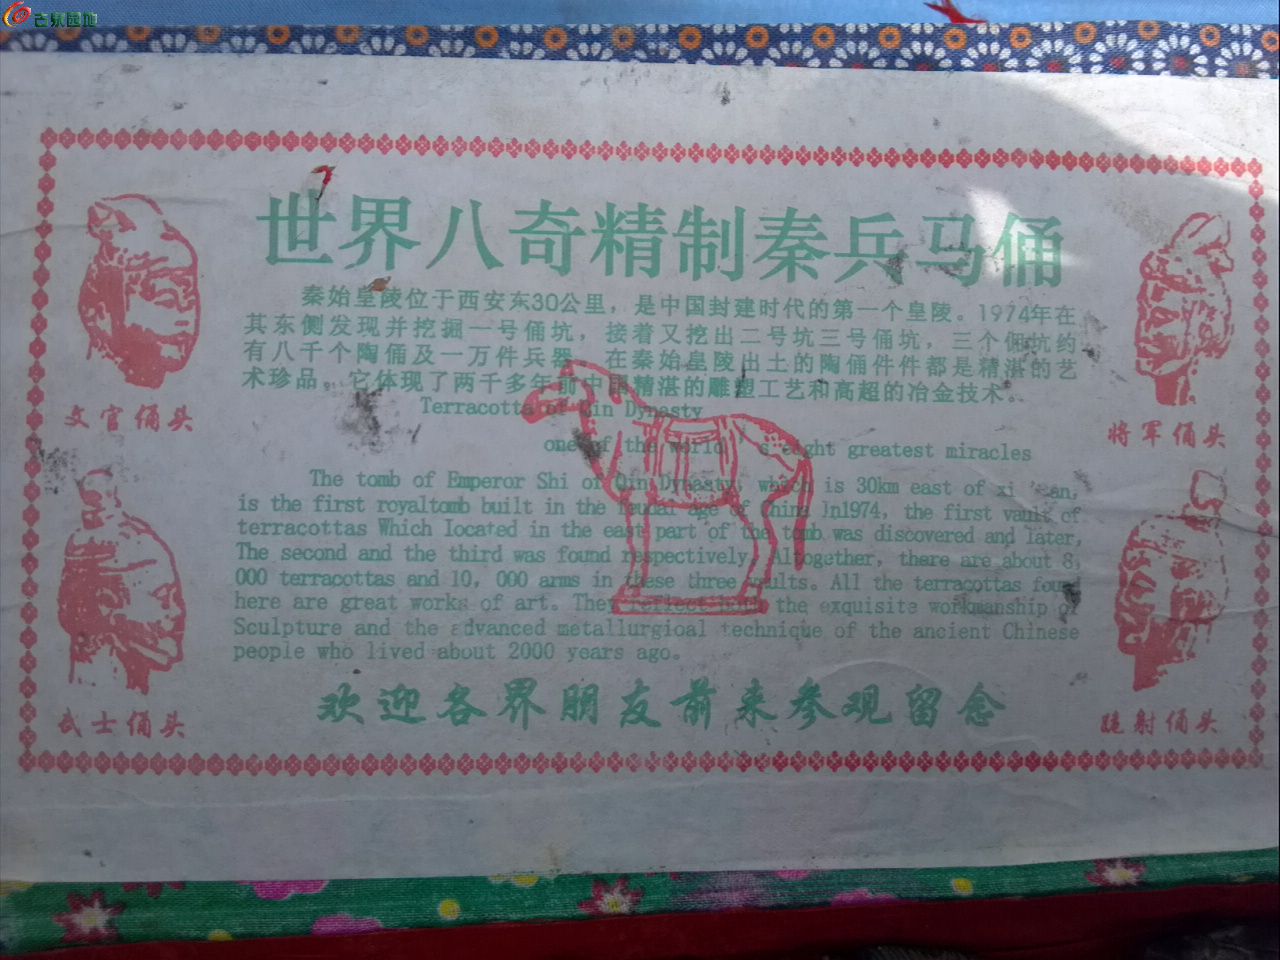 古泉园地
世界八奇精制秦兵马俑
秦始皇陵位于西安东30公里，是中国封建时代的第一个皇陵。1974年在
其东侧发现并挖掘一号俑坑，接着又挖出二号坑三号俑坑，三个俑坑约
有八千个陶俑及一万件兵器，在秦始皇陵出土的陶俑件件都是精湛的艺
术珍品。它体现了两千多年前中国精湛的雕塑工艺和高超的冶金技术。
Terracotta of Qin Dynasty
one of the world's eight greatest miracles
The tomb of Emperor Shi of Qin Dynasty, which is 30km east of xi'an,
is the first royaltomb built in the feudal age of China Jn1974, the first vault of
terracottas Which Iocated in the east part of the tomb was discovered and later,
The second and the third was found respectively. Altogether, there are about 8,
000 terracottas and 10, 000 arms in these three vaults. All the terracottas found
here are great works of art. They reflect both the exquisite workmanship of
Sculpture and the advanced metallurgioal technique of the ancient Chinese
people who lived about 2000 years ago.
欢迎各界朋友前来参观留念
文官俑头
武士俑头
将军俑头
跪射俑头